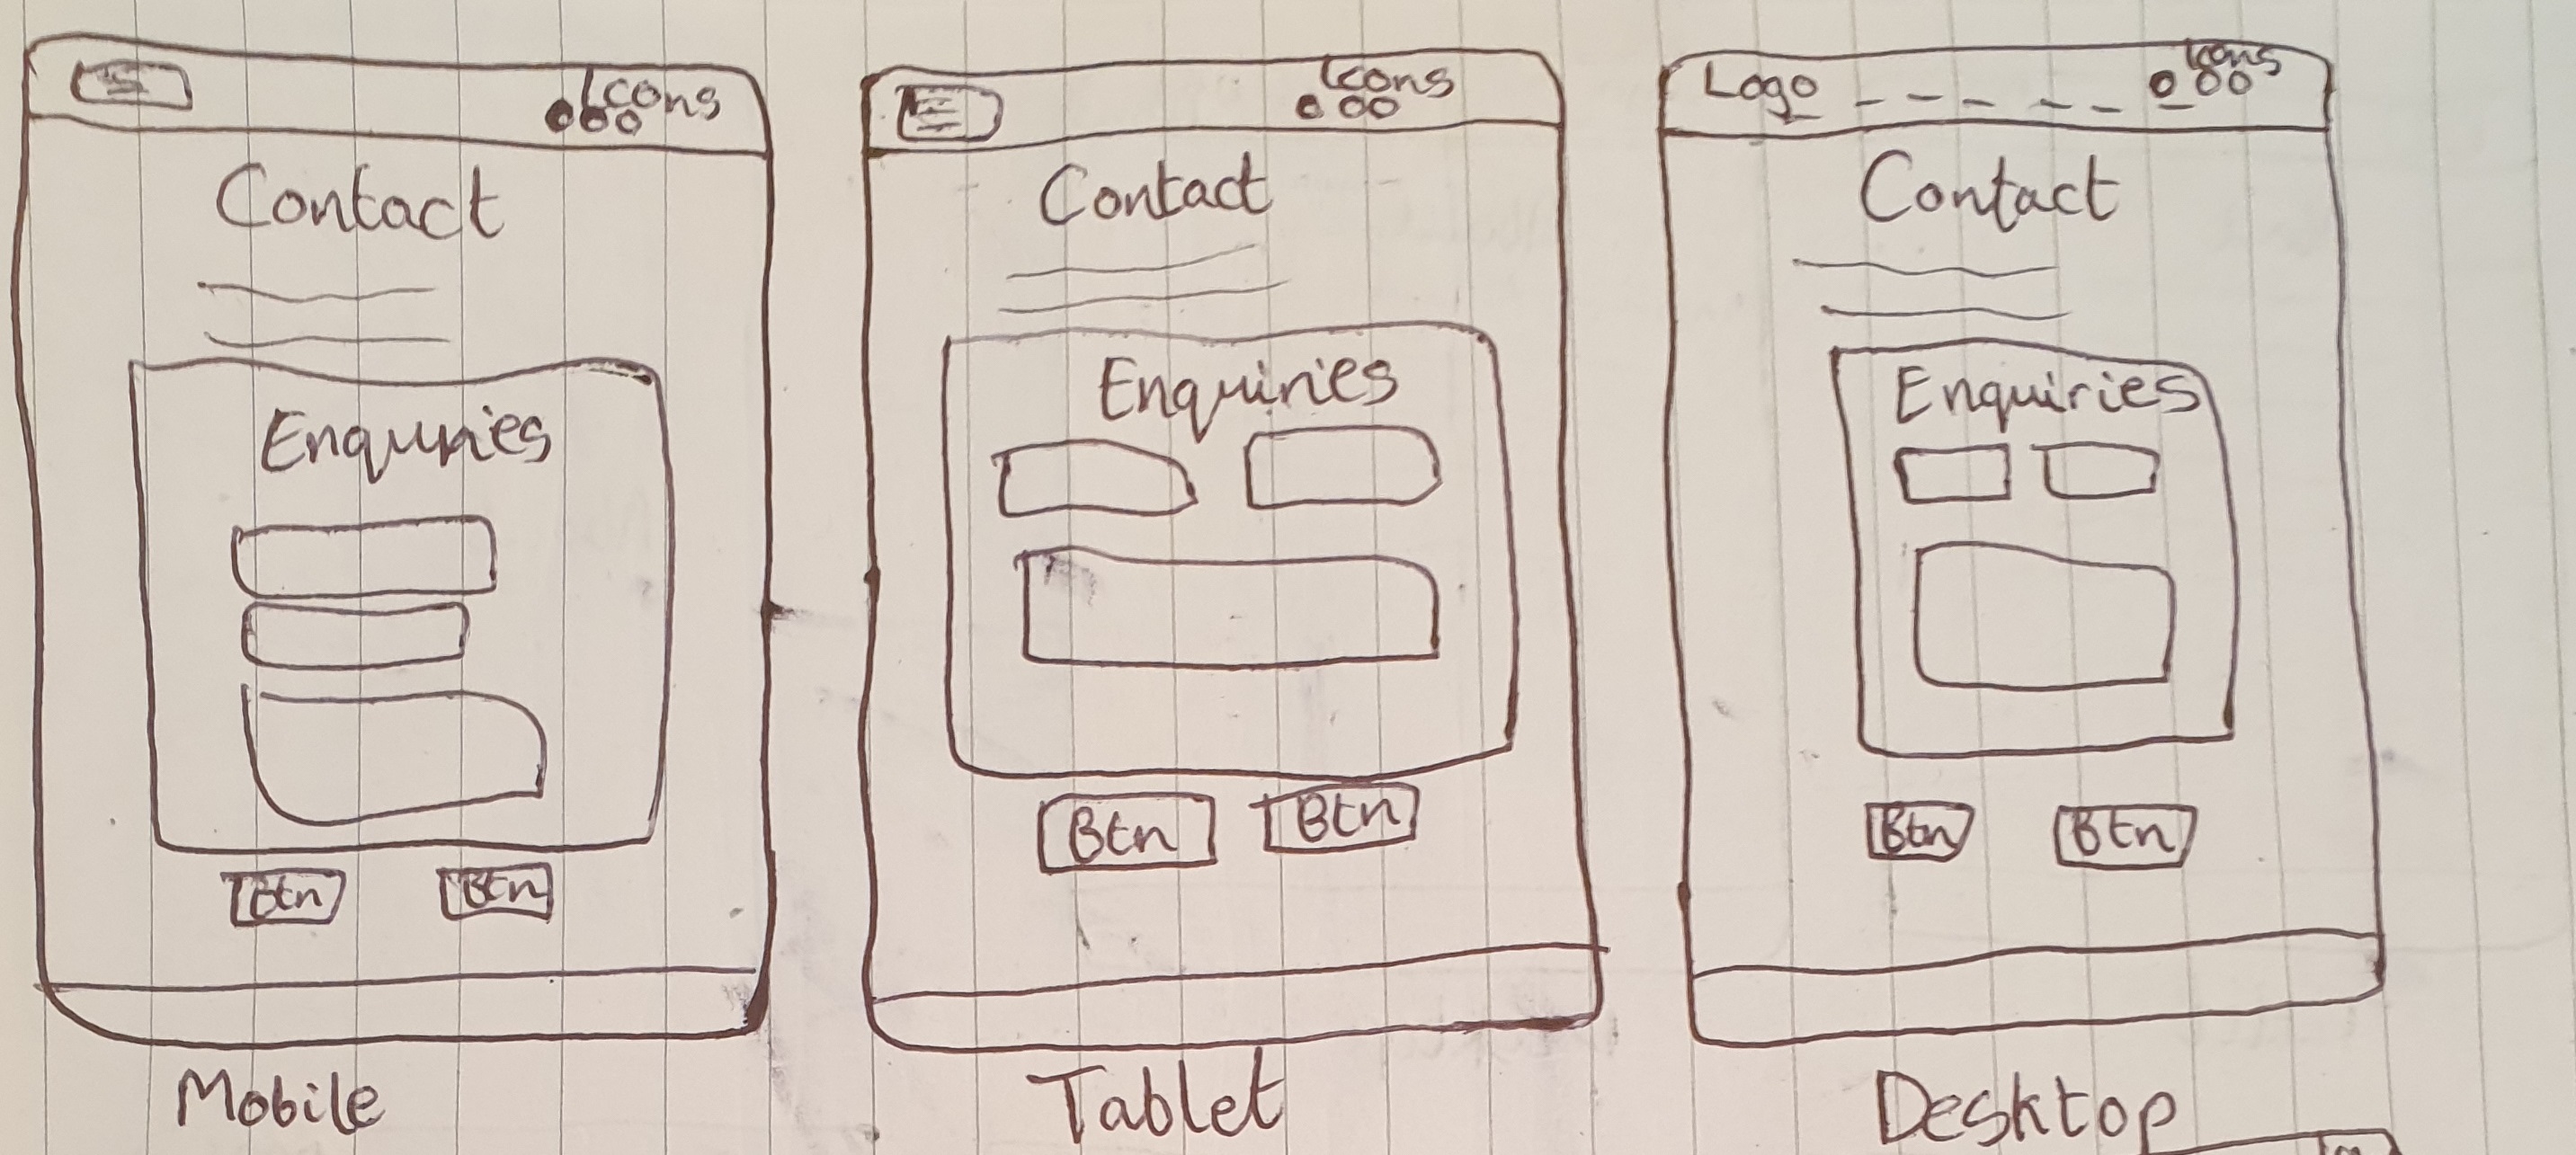 Icons
Contact
Enquries
Btn Btn
Mobile
Icons
Contact
Enquiries
Btn Btn
Tablet
Logo Icons
Contact
Enquiries
Btn Btn
Desktop